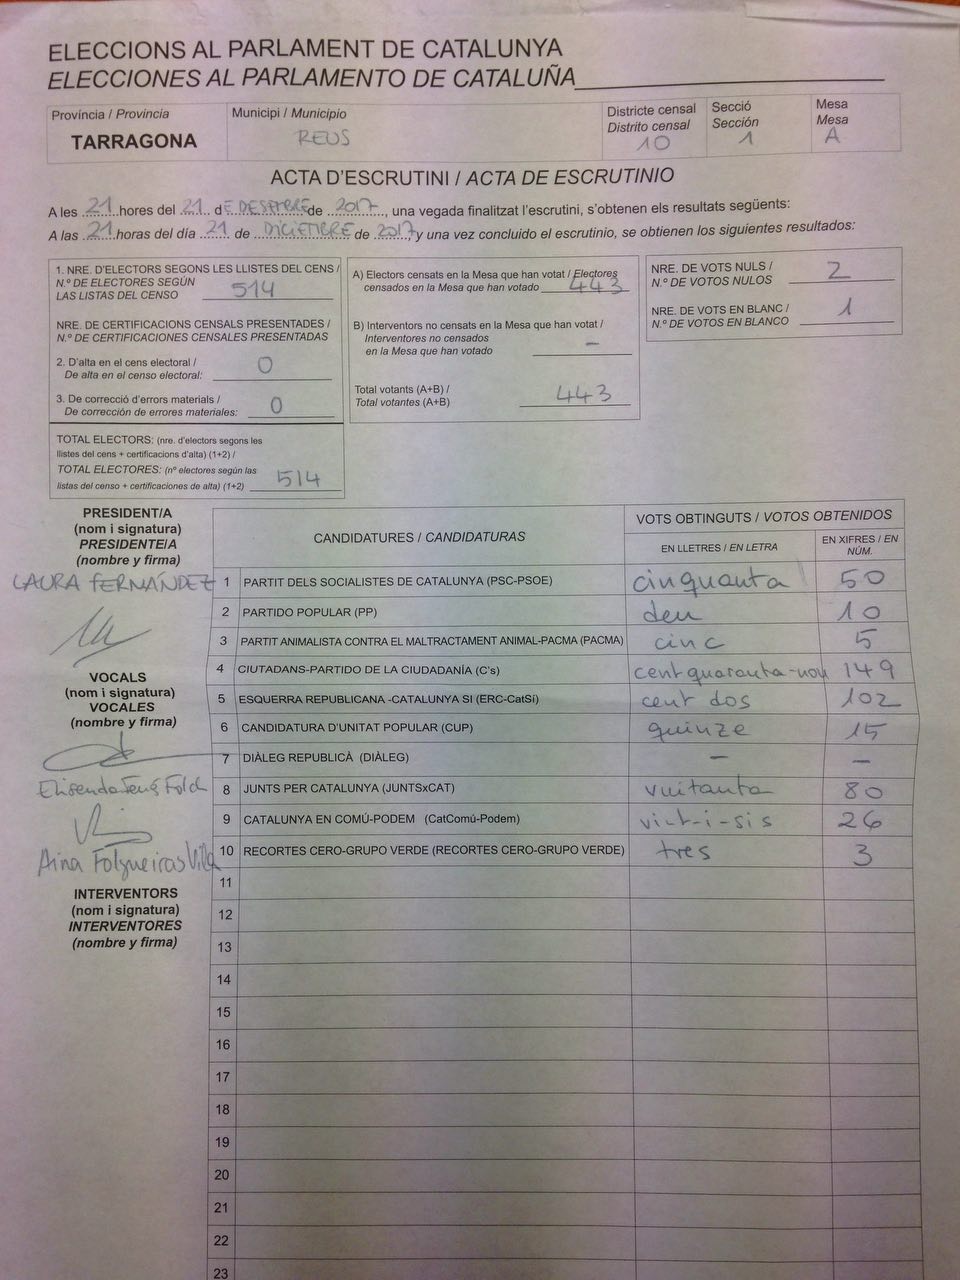 ELECCIONS AL PARLAMENT DE CATALUNYA
ELECCIONES AL PARLAMENTO DE CATALUÑA
Província / Provincia
TARRAGONA
Municipi / Municipio
REUS
Districte censal
Distrito censal
10
Secció
Sección
1
Mesa
Mesa
A
ACTA D'ESCRUTINI / ACTA DE ESCRUTINIO
A les 21 hores del 21 dE DESEMBRE de 2017, una vegada finalitzat l'escrutini, s'obtenen els resultats següents:
A las 21 horas del día 21 de DICIEMBRE de 2017, y una vez concluido el escrutinio, se obtienen los siguientes resultados:
1. NRE. D'ELECTORS SEGONS LES LLISTES DEL CENS /
N.º DE ELECTORES SEGÚN
LAS LISTAS DEL CENSO 514
NRE. DE CERTIFICACIONS CENSALS PRESENTADES /
N.º DE CERTIFICACIONES CENSALES PRESENTADAS
2. D'alta en el cens electoral /
De alta en el censo electoral: 0
3. De correcció d'errors materials /
De corrección de errores materiales: 0
TOTAL ELECTORS: (nre. d'electors segons les
llistes del cens + certificacions d'alta) (1+2) /
TOTAL ELECTORES: (nº electores según las
listas del censo + certificaciones de alta) (1+2) 514
A) Electors censats en la Mesa que han votat / Electores
censados en la Mesa que han votado 443
B) Interventors no censats en la Mesa que han votat /
Interventores no censados
en la Mesa que han votado -
Total votants (A+B) /
Total votantes (A+B) 443
NRE. DE VOTS NULS /
N.º DE VOTOS NULOS 2
NRE. DE VOTS EN BLANC /
N.º DE VOTOS EN BLANCO 1
PRESIDENT/A
(nom i signatura)
PRESIDENTE/A
(nombre y firma)
LAURA FERNÁNDEZ
VOCALS
(nom i signatura)
VOCALES
(nombre y firma)
Elisenda
Aina Folgueiras Villa
INTERVENTORS
(nom i signatura)
INTERVENTORES
(nombre y firma)
CANDIDATURES / CANDIDATURAS
VOTS OBTINGUTS / VOTOS OBTENIDOS
EN LLETRES / EN LETRA
EN XIFRES / EN
NÚM.
1 PARTIT DELS SOCIALISTES DE CATALUNYA (PSC-PSOE) cinquanta 50
2 PARTIDO POPULAR (PP) deu 10
3 PARTIT ANIMALISTA CONTRA EL MALTRACTAMENT ANIMAL-PACMA (PACMA) cinc 5
4 CIUTADANS-PARTIDO DE LA CIUDADANÍA (C's) cent quaranta-nou 149
5 ESQUERRA REPUBLICANA -CATALUNYA SI (ERC-CatSí) cent dos 102
6 CANDIDATURA D'UNITAT POPULAR (CUP) quinze 15
7 DIÀLEG REPUBLICÀ (DIÀLEG) - -
8 JUNTS PER CATALUNYA (JUNTSxCAT) vuitanta 80
9 CATALUNYA EN COMÚ-PODEM (CatComú-Podem) vint-i-sis 26
10 RECORTES CERO-GRUPO VERDE (RECORTES CERO-GRUPO VERDE) tres 3
11
12
13
14
15
16
17
18
19
20
21
22
23